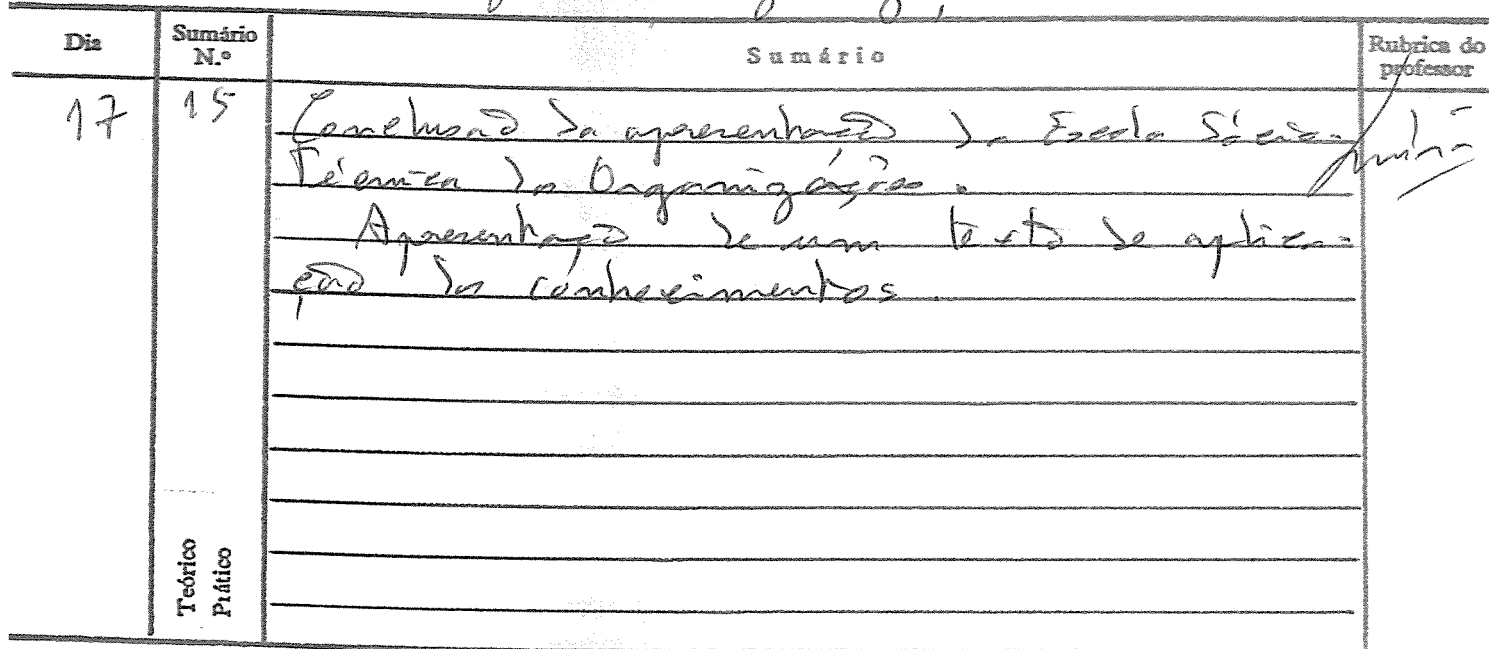 Dia
Sumário N.º
Sumário
Rubrica do professor
17
15
Conclusão da apresentação da Escola Sócio-
Técnica das Organizações.
Apresentação de um texto de aplica-
ção dos conhecimentos.
Teórico
Prático